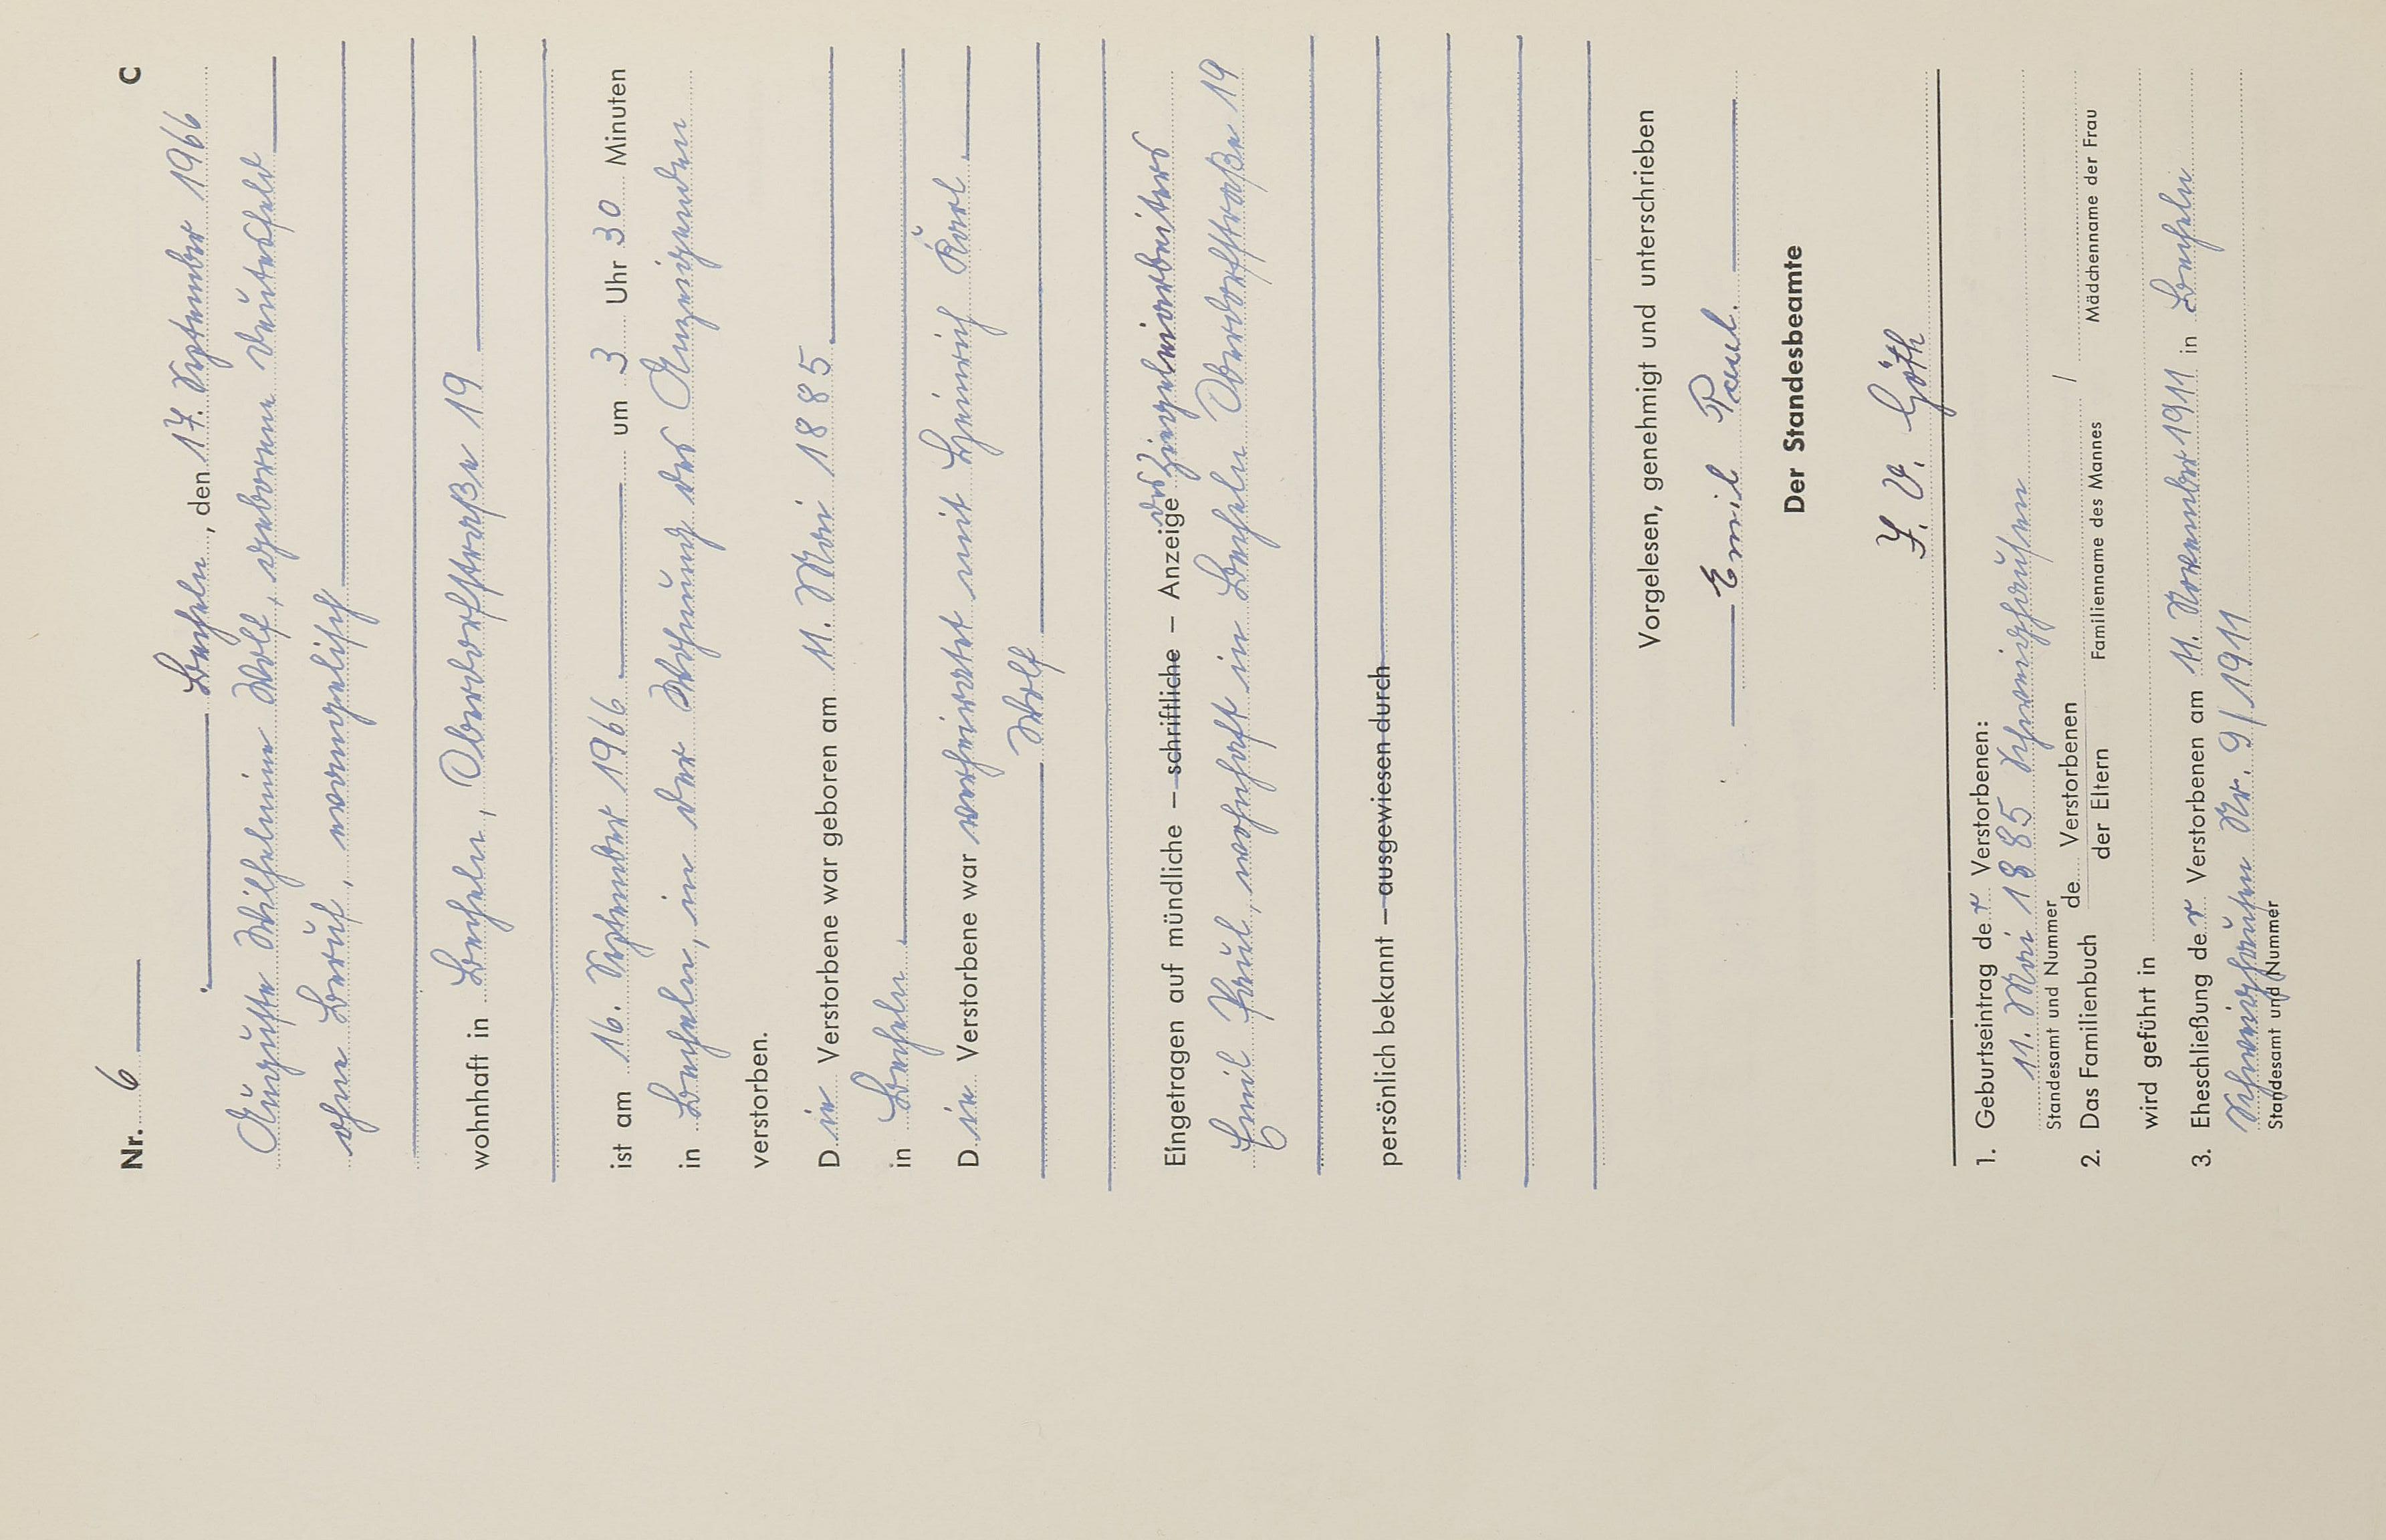 Nr. 6 C
Becheln, den 17. September 1966
Auguste Wilhelmine Wolf, geborene Dautefeld
ohne Beruf, evangelisch
wohnhaft in Becheln, Oberdorfstraße 19
ist am 16. September 1966 um 3 Uhr 30 Minuten
in Becheln, in der Wohnung des Anzeigenden
verstorben.
Die Verstorbene war geboren am 11. Mai 1885
in Becheln.
Die Verstorbene war verheiratet mit Heinrich Karl
Wolf
Eingetragen auf mündliche – schriftliche – Anzeige des Ziegeleiarbeiters
Emil Paul, wohnhaft in Becheln Oberdorfstraße 19
persönlich bekannt – ausgewiesen durch
Vorgelesen, genehmigt und unterschrieben
Emil Paul.
Der Standesbeamte
I. V. Göth
1. Geburtseintrag der Verstorbenen:
11. Mai 1885 Schweighausen
Standesamt und Nummer
2. Das Familienbuch de Verstorbenen der Eltern /
Familienname des Mannes Mädchenname der Frau
wird geführt in
3. Eheschließung der Verstorbenen am 11. November 1911 in Becheln
Schweighausen Nr. 9/1911
Standesamt und Nummer